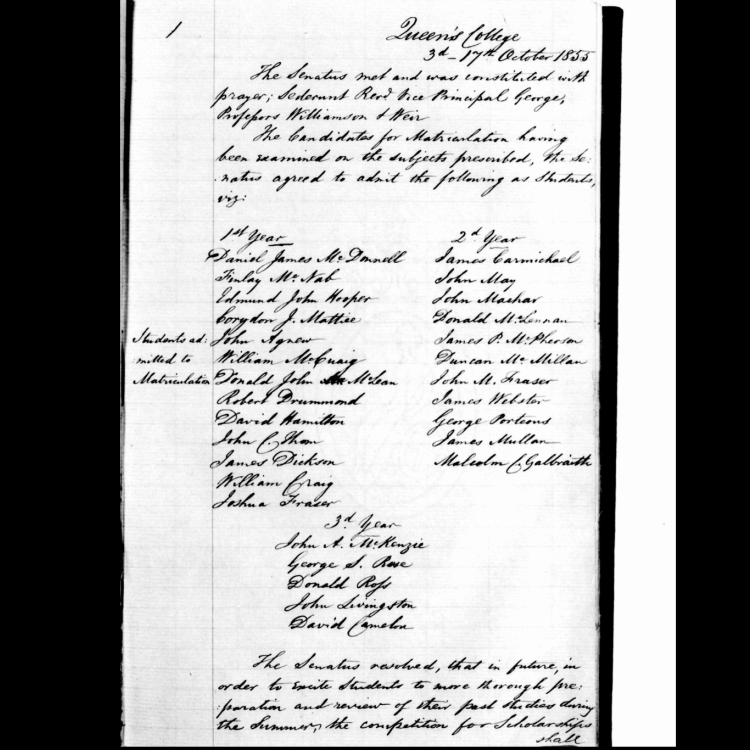 1
Queen's College
3d - 17th October 1855
The Senatus met and was constituted with
prayer; Sederunt Revd Vice Principal George,
Professors Williamson & Weir
The Candidates for Matriculation having
been examined on the subjects prescribed, the Se:
:natus agreed to admit the following as Students,
viz:
1st Year
Daniel James McDonnell
Finlay McNab
Edmund John Hooper
Corydon J. Mattice
John Agnew
William McCuaig
Donald John McLean
Robert Drummond
David Hamilton
John C. Thom
James Dickson
William Craig
Joshua Fraser
2d Year
James Carmichael
John May
John Machar
Donald McLennan
James P. McPherson
Duncan McMillan
John M. Fraser
James Webster
George Porteous
James Mullan
Malcolm C. Galbraith
Students ad:
:mitted to
Matriculation
3d Year
John A. McKenzie
George S. Rose
Donald Ross
John Livingston
David Camelon
The Senatus resolved, that in future, in
order to excite Students to more thorough pre:
:paration and review of their past studies during
the Summer, the competition for Scholarships
shall